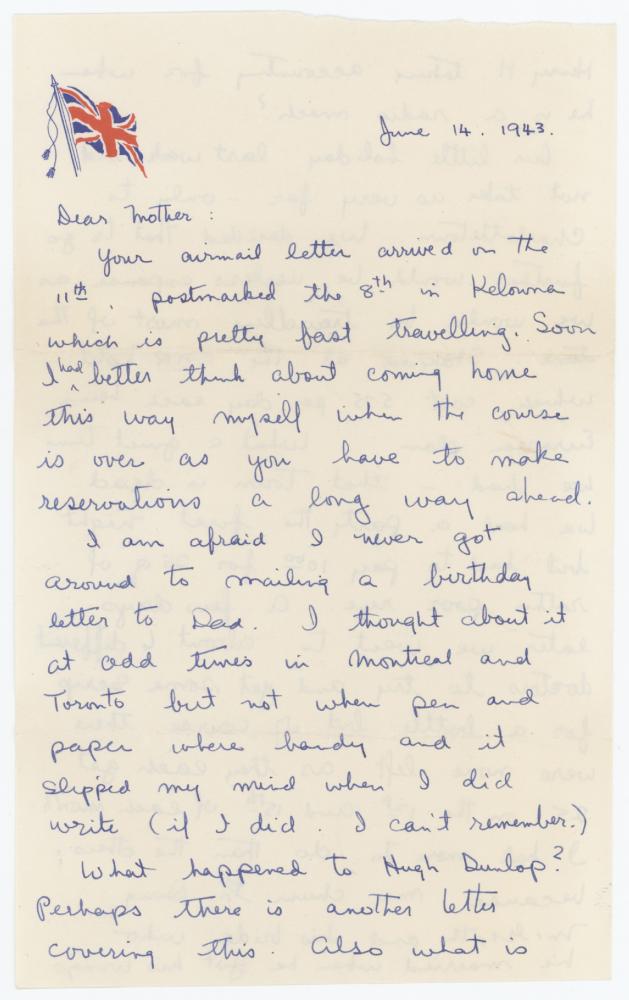 June 14. 1943.
Dear Mother:
Your airmail letter arrived on the
11th, postmarked the 8th in Kelowna
which is pretty fast travelling. Soon
I had better think about coming home
this way myself when the course
is over as you have to make
reservations a long way ahead.
I am afraid I never got
around to mailing a birthday
letter to Dad. I thought about it
at odd times in Montreal and
Toronto but not when pen and
paper where handy and it
slipped my mind when I did
write (if I did. I can't remember.)
What happened to Hugh Dunlop?
Perhaps there is another letter
covering this. Also what is